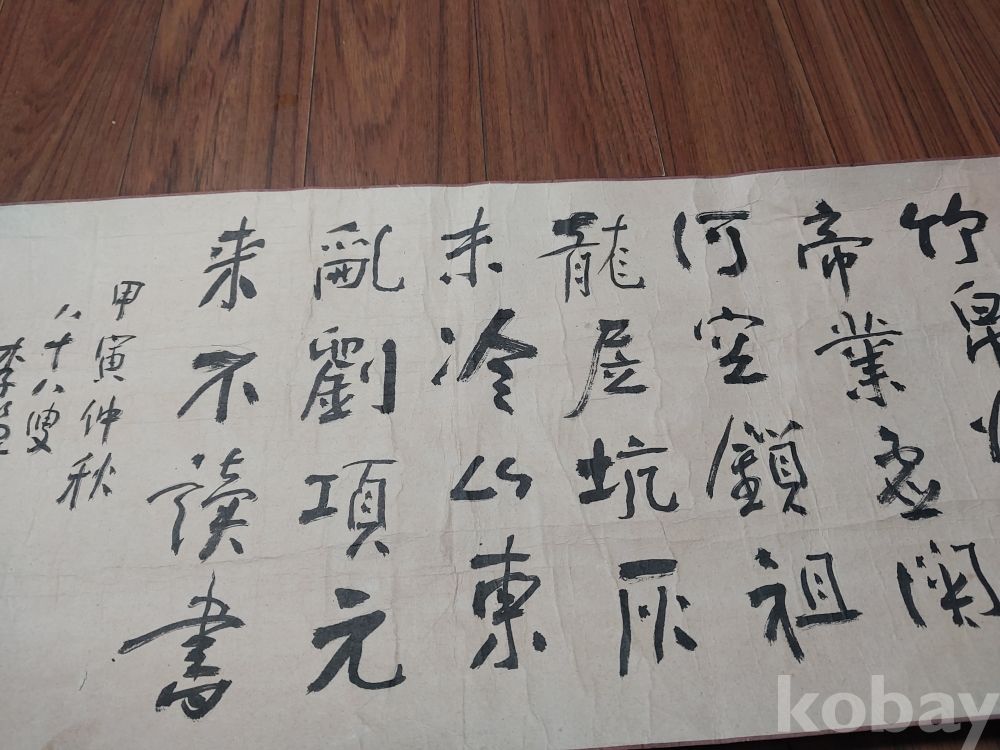 竹帛
帝業虚関
河空鎖祖
龍居坑灰
未冷山東
亂劉項元
来不读書
甲寅仲秋
八十八叟
李
kobay